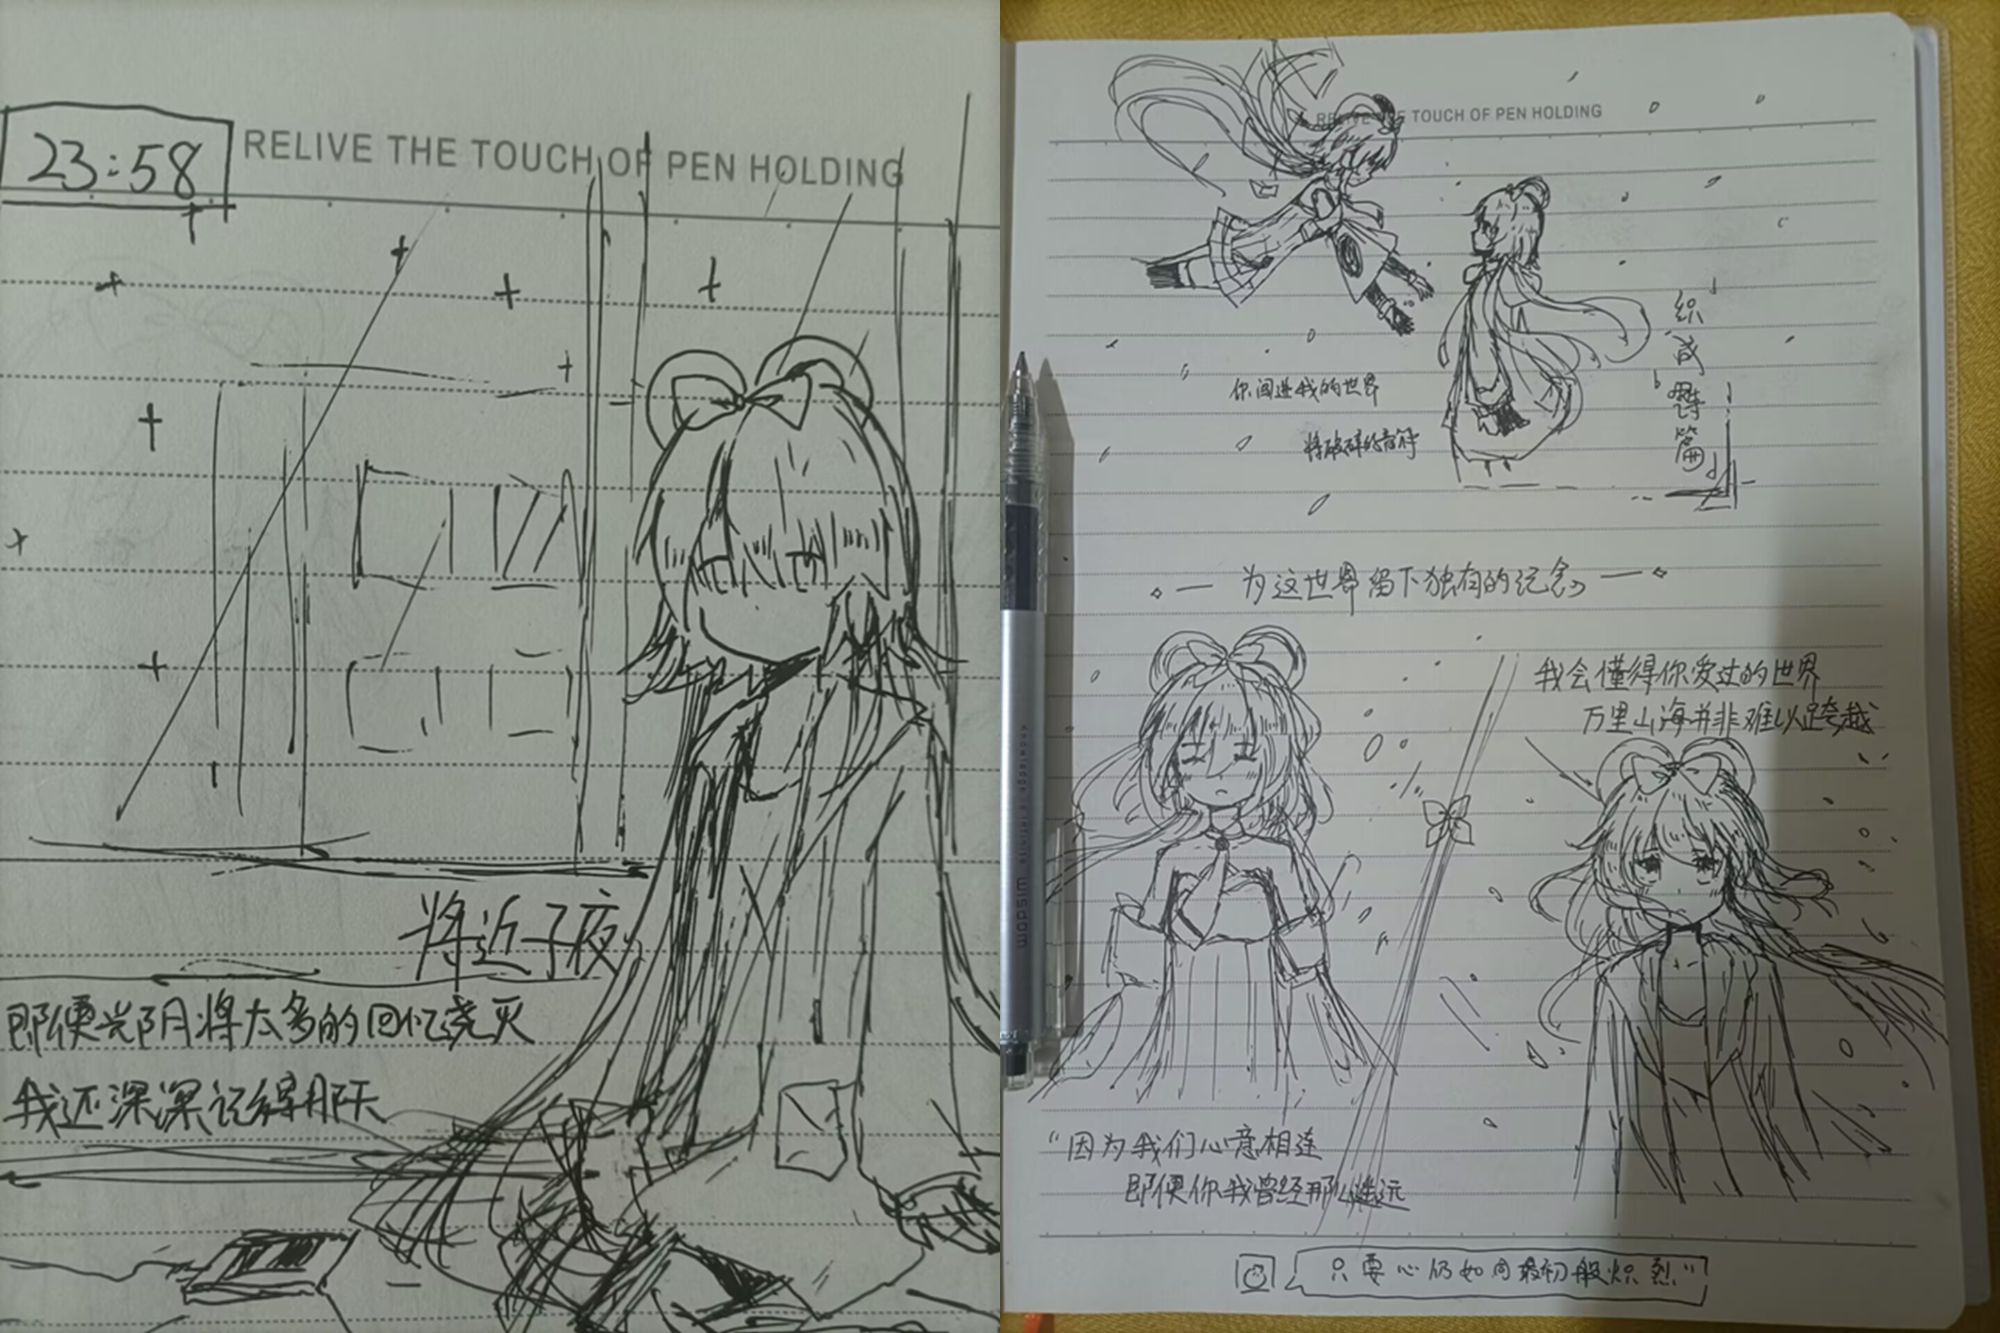 23:58
RELIVE THE TOUCH OF PEN HOLDING
将近子夜
即便光阴将太多的回忆烧灭
我还深深记得那天
RELIVE THE TOUCH OF PEN HOLDING
你闯进我的世界
将破碎的音符
织成诗篇
为这世界留下独有的纪念
我会懂得你爱过的世界
万里山海并非难以跨越
"因为我们心意相连
即便你我曾经那么遥远
只要心仍如同最初般炽烈"
Wisdom